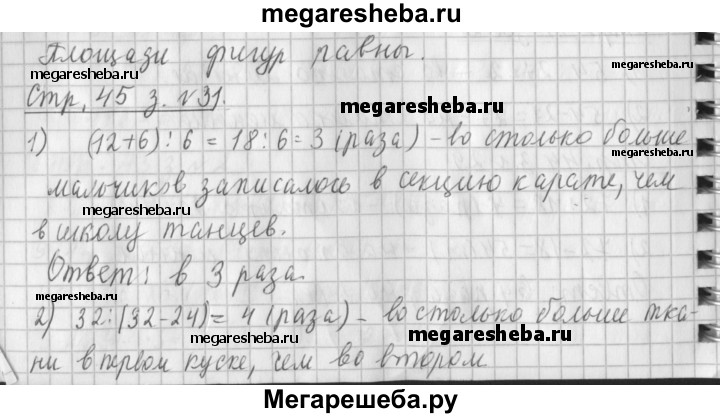 megaresheba.ru
Площади фигур равны.
megaresheba.ru megaresheba.ru
Стр, 45 з. №31.
megaresheba.ru
1) (12+6):6 = 18:6=3 (раза) - во столько больше
megaresheba.ru
мальчиков записалось в секцию карате, чем
megaresheba.ru
в школу танцев.
Ответ: в 3 раза.
megaresheba.ru
2) 32:(32-24)= 4 (раза) - во столько больше тка-
megaresheba.ru megaresheba.ru
ни в первом куске, чем во втором
Мегарешеба.ру